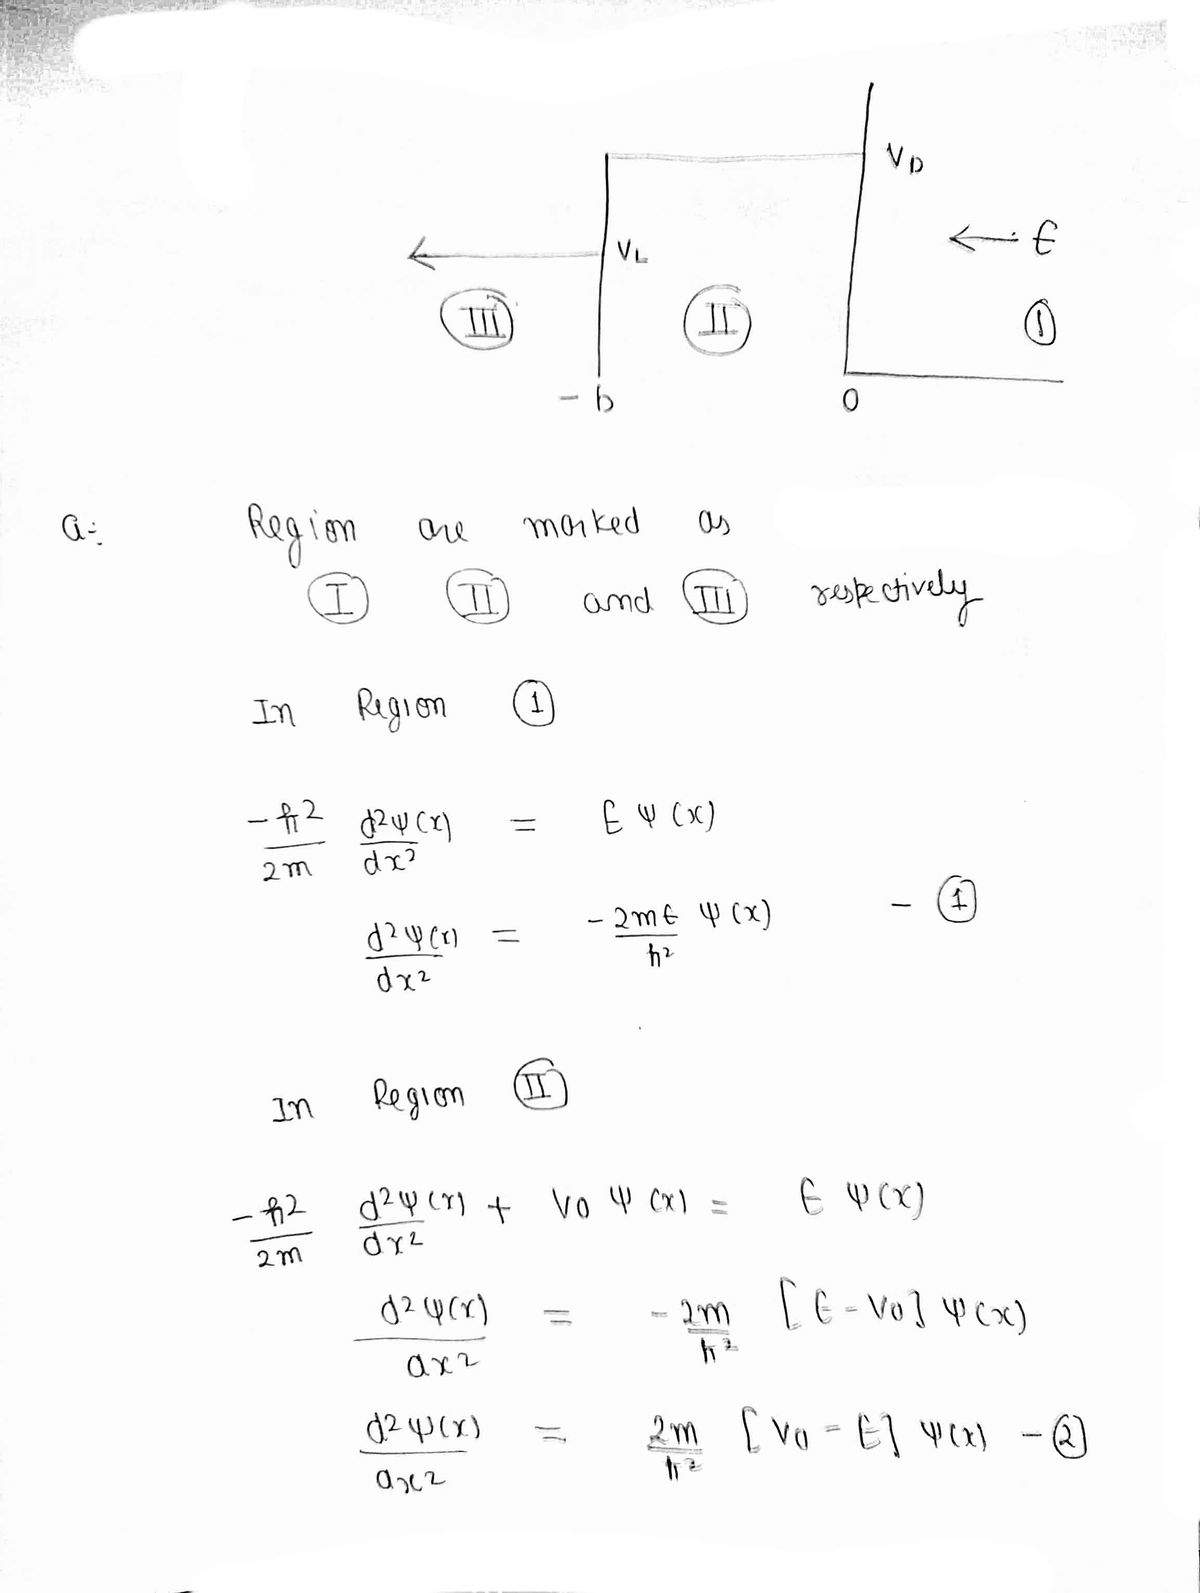 V_D
← E
V_L
III II 1
- b 0
a:- Region are marked as
I II and III respectively
In Region 1
-ħ²/2m d²ψ(x)/dx² = E ψ(x)
d²ψ(x)/dx² = -2mE/ħ² ψ(x) - 1
In Region II
-ħ²/2m d²ψ(x)/dx² + V0 ψ(x) = E ψ(x)
d²ψ(x)/dx² = -2m/ħ² [E - V0] ψ(x)
d²ψ(x)/dx² = 2m/ħ² [V0 - E] ψ(x) - 2